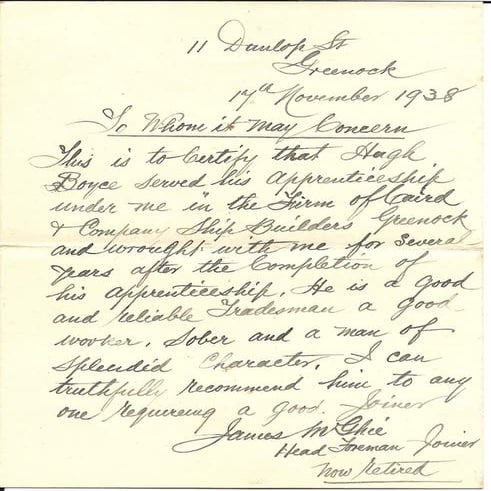 11 Dunlop St
Greenock
17th November 1938
To Whom it may Concern
This is to Certify that Hugh
Boyce served his apprenticeship
under me in the Firm of Caird
& Company Ship Builders Greenock
and wrought with me for several
years after the Completion of
his apprenticeship. He is a good
and reliable Tradesman a good
worker, sober and a man of
splendid Character. I can
truthfully recommend him to any
one requireing a good Joiner
James McGhie
Head Foreman Joiner
now retired